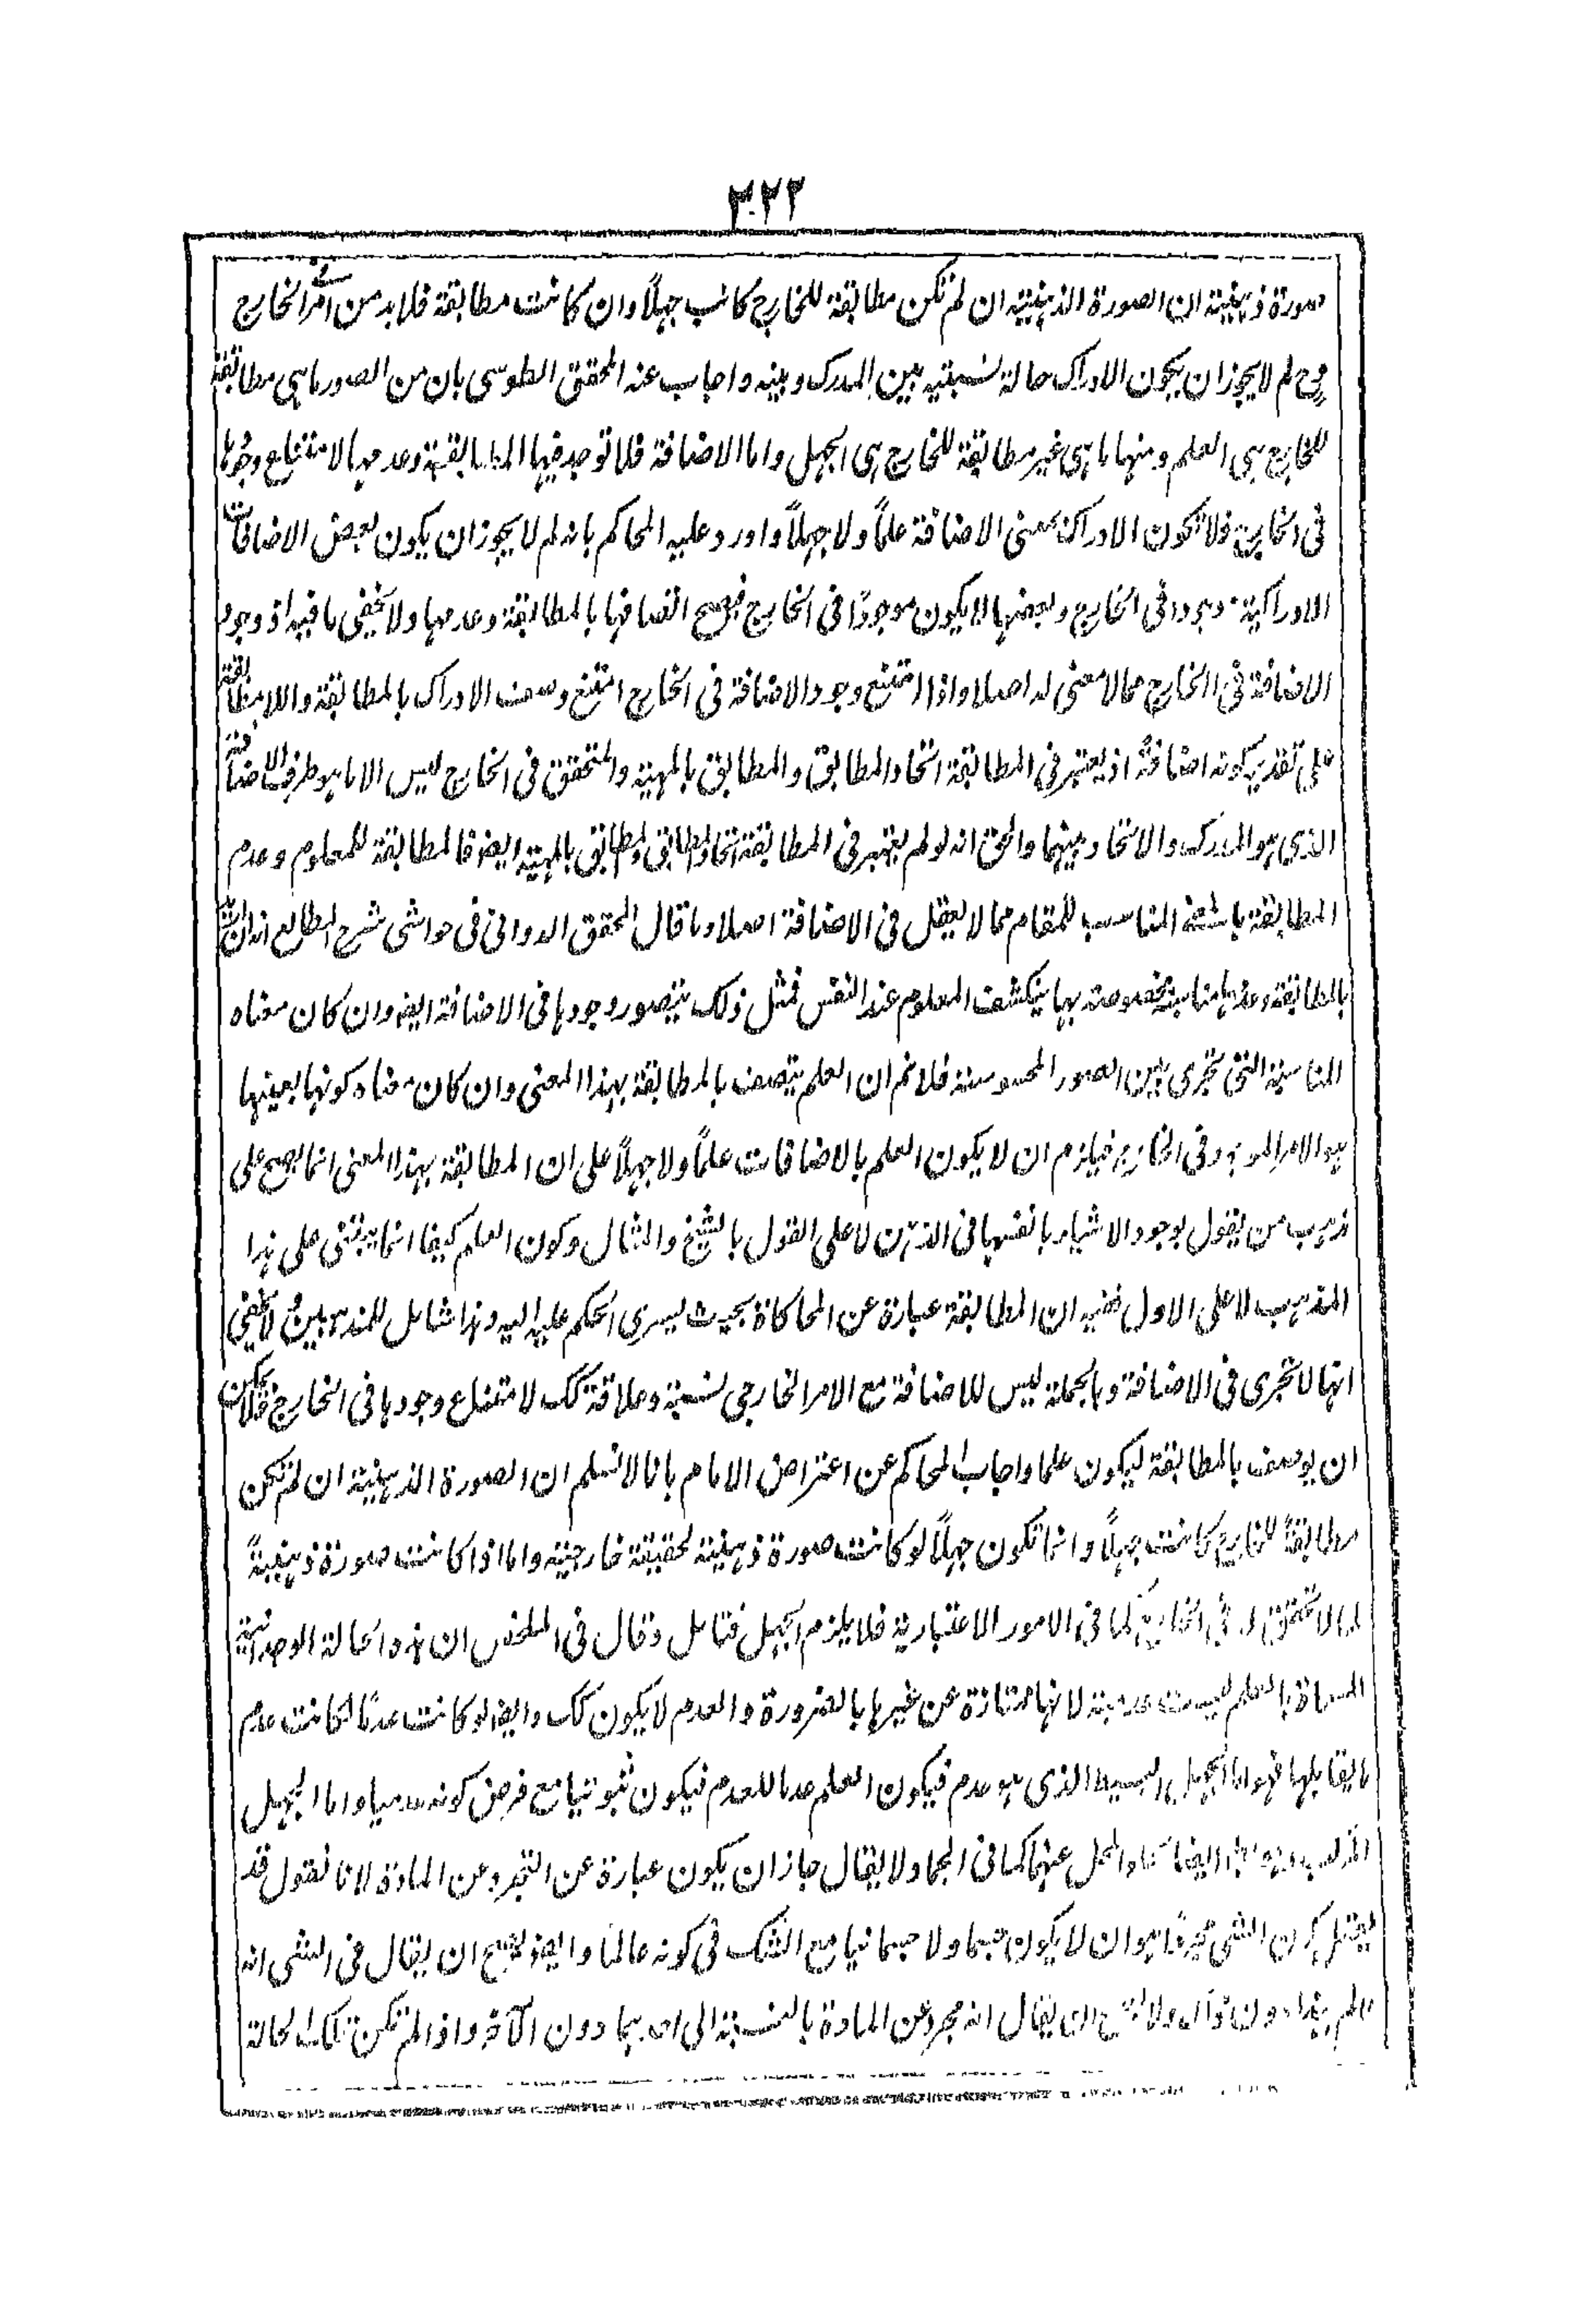 ٣٢٢
صورة ذهنية ان الصورة الذهنية ان لم تكن مطابقة للخارج كانت جهلاً وان كانت مطابقة فلا بد من امر فى الخارج
وح لم لا يجوز ان يكون الادراك حالة نسبتيه بين المدرك وبينه واجاب عنه المحقق الطوسى بان من الصور ما هى مطابقة
للخارج هى العلم ومنها ما هى غير مطابقة للخارج هى الجهل واما الاضافة فلا توجد فيها المطابقة وعدمها لامتناع وجودها
فى الخارج فلا تكون الادراك بمعنى الاضافة علماً ولا جهلاً واورد عليه المحاكم بانه لم لا يجوز ان يكون بعض الاضافات
الادراكية موجودا فى الخارج وبعضها لا يكون موجودًا فى الخارج فيصح اتصافها بالمطابقة وعدمها ولا يخفى ما فيه اذ وجود
الاضافة فى الخارج مما لا معنى له اصلا واذا امتنع وجود الاضافة فى الخارج امتنع وصف الادراك بالمطابقة واللامطابقة
على تقدير كونه اضافةً اذ يعتبر فى المطابقة اتحاد المطابق والمطابق بالمهية والمتحقق فى الخارج ليس الا ما هو طرف الاضافة
الذى هو المدرك والاتحاد بينهما والحق انه لو لم يعتبر فى المطابقة اتحاد المطابق والمطابق بالمهية ايضا فالمطابقة للمعلوم وعدم
المطابقة بالمعنى المناسب للمقام مما لا يعقل فى الاضافة اصلا وما قال المحقق الدوانى فى حواشى شرح المطالع انه ان
بالمطابقة وعدمها مناسبة مخصوصة بها ينكشف المعلوم عند النفس فمثل ذلك يتصور وجودها فى الاضافة ايضا وان كان معناه
المناسبة التى تجرى بين الصور المحسوسة فلانم ان العلم يتصف بالمطابقة بهذا المعنى وان كان معناه كونها بعينها
هو الامر الموجود فى الخارج فيلزم ان لا يكون العلم بالاضافات علماً ولا جهلاً على ان المطابقة بهذا المعنى انما يصح على
مذهب من يقول بوجود الاشياء بانفسها فى الذهن لا على القول بالشبح والمثال وكون العلم كيفا انما يبتنى على هذا
المذهب لا على الاول ففيه ان المطابقة عبارة عن المحاكاة بحيث يسرى الحكم عليه اليه وهذا شامل للمذهبين ولا يخفى
انها لا تجرى فى الاضافة وبالجملة ليس للاضافة مع الامر الخارجى نسبة وعلاقة كك لامتناع وجودها فى الخارج فلا يمكن
ان يوصف بالمطابقة ليكون علما واجاب المحاكم عن اعتراض الامام بانا لا نسلم ان الصورة الذهنية ان لم تكن
مطابقةً للخارج كانت جهلاً وانما تكون جهلاً لو كانت صورة ذهنية لحقيقة خارجية واما اذا كانت صورة ذهنيةً
لما لا تحقق له فى الخارج كما فى الامور الاعتبارية فلا يلزم الجهل فتامل وقال فى الملخص ان هذه الحالة الوجدانية
المسماة بالعلم ليست عدمية لانها ممتازة عن غيرها بالضرورة والعدم لا يكون كك وايضا لو كانت عدمًا لكانت عدم
ما يقابلها فهو اما الجهل البسيط الذى هو عدم فيكون العلم عدما للعدم فيكون ثبوتيا مع فرض كونه عدميا واما الجهل
المركب وهو باطل ايضا لخلو المحل عنهما كما فى الجماد ولا يقال جاز ان يكون عبارة عن التجرد عن المادة لانا نقول قد
يعقل كون الشئ مجردًا هو ان لا يكون جسما ولا جسمانيا مع الشك فى كونه عالما وايضا يصح ان يقال فى الشى انه
عالم بهذا دون ذاك ولا يصح ان يقال انه مجرد عن المادة بالنسبة الى احدهما دون الآخر واذا لم تكن تلك الحالة